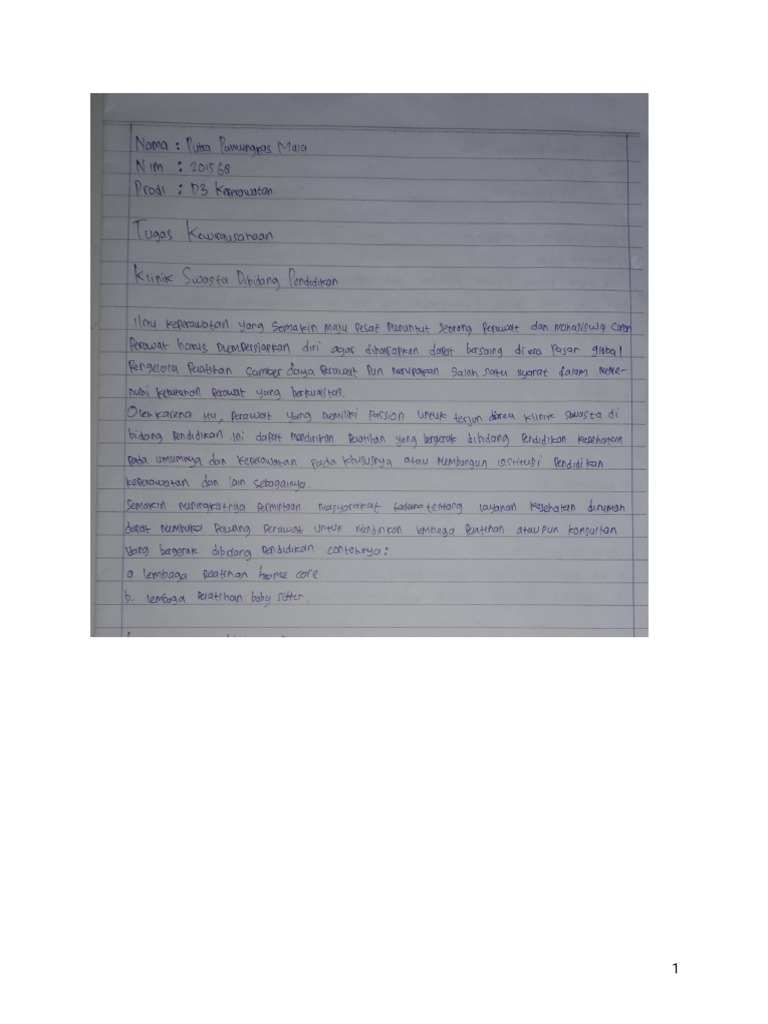 Nama : Putra Pamungkas Mala
Nim : 201568
Prodi : D3 Keperawatan
Tugas Kewirausahaan
Klinik Swasta Dibidang Pendidikan
Ilmu keperawatan yang semakin maju pesat menuntut seorang perawat dan mahasiswa calon
perawat harus mempersiapkan diri agar diharapkan dapat bersaing di era pasar global
Pengelola Pelatihan sumber daya perawat pun merupakan salah satu syarat dalam meme-
nuhi kebutuhan perawat yang berkualitas.
Oleh karena itu, perawat yang memiliki passion untuk terjun klinik swasta di
bidang pendidikan ini dapat mendirikan pelatihan yang bergerak dibidang pendidikan kesehatan
pada umumnya dan keperawatan pada khususnya atau membangun institusi pendidikan
keperawatan dan lain sebagainya.
Semakin meningkatnya permintaan masyarakat tentang layanan kesehatan dirumah
dapat membuka peluang perawat untuk mendirikan lembaga pelatihan ataupun konsultan
yang bergerak dibidang pendidikan contohnya :
a. lembaga pelatihan home care
b. lembaga pelatihan baby sitter.
1